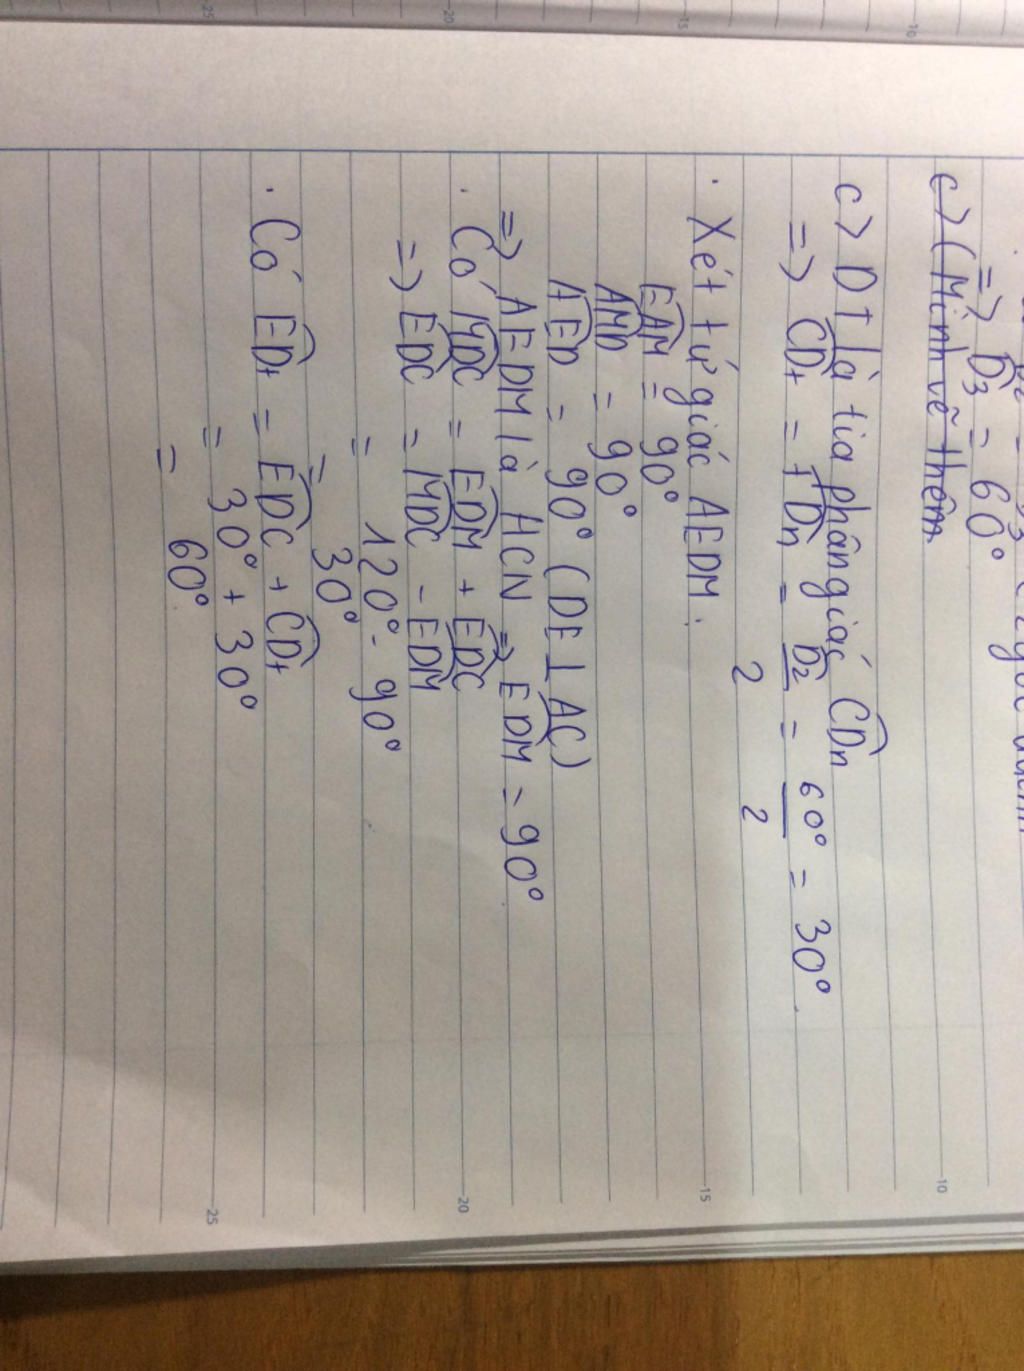 ⇒ D̂3 = 60°
c) (Mình vẽ thêm
c) Dt là tia phân giác CDn
⇒ CDt = tDn = D̂2/2 = 60°/2 = 30°.
· Xét tứ giác AEDM.
EAM = 90°
AMD = 90°
AED = 90° (DE ⊥ AC)
⇒ AEDM là HCN ⇒ EDM = 90°
· Có MDC = EDM + EDC
⇒ EDC = MDC - EDM
= 120° - 90°
= 30°
· Có EDt = EDC + CDt
= 30° + 30°
= 60°
10
15
20
25
10
15
20
25